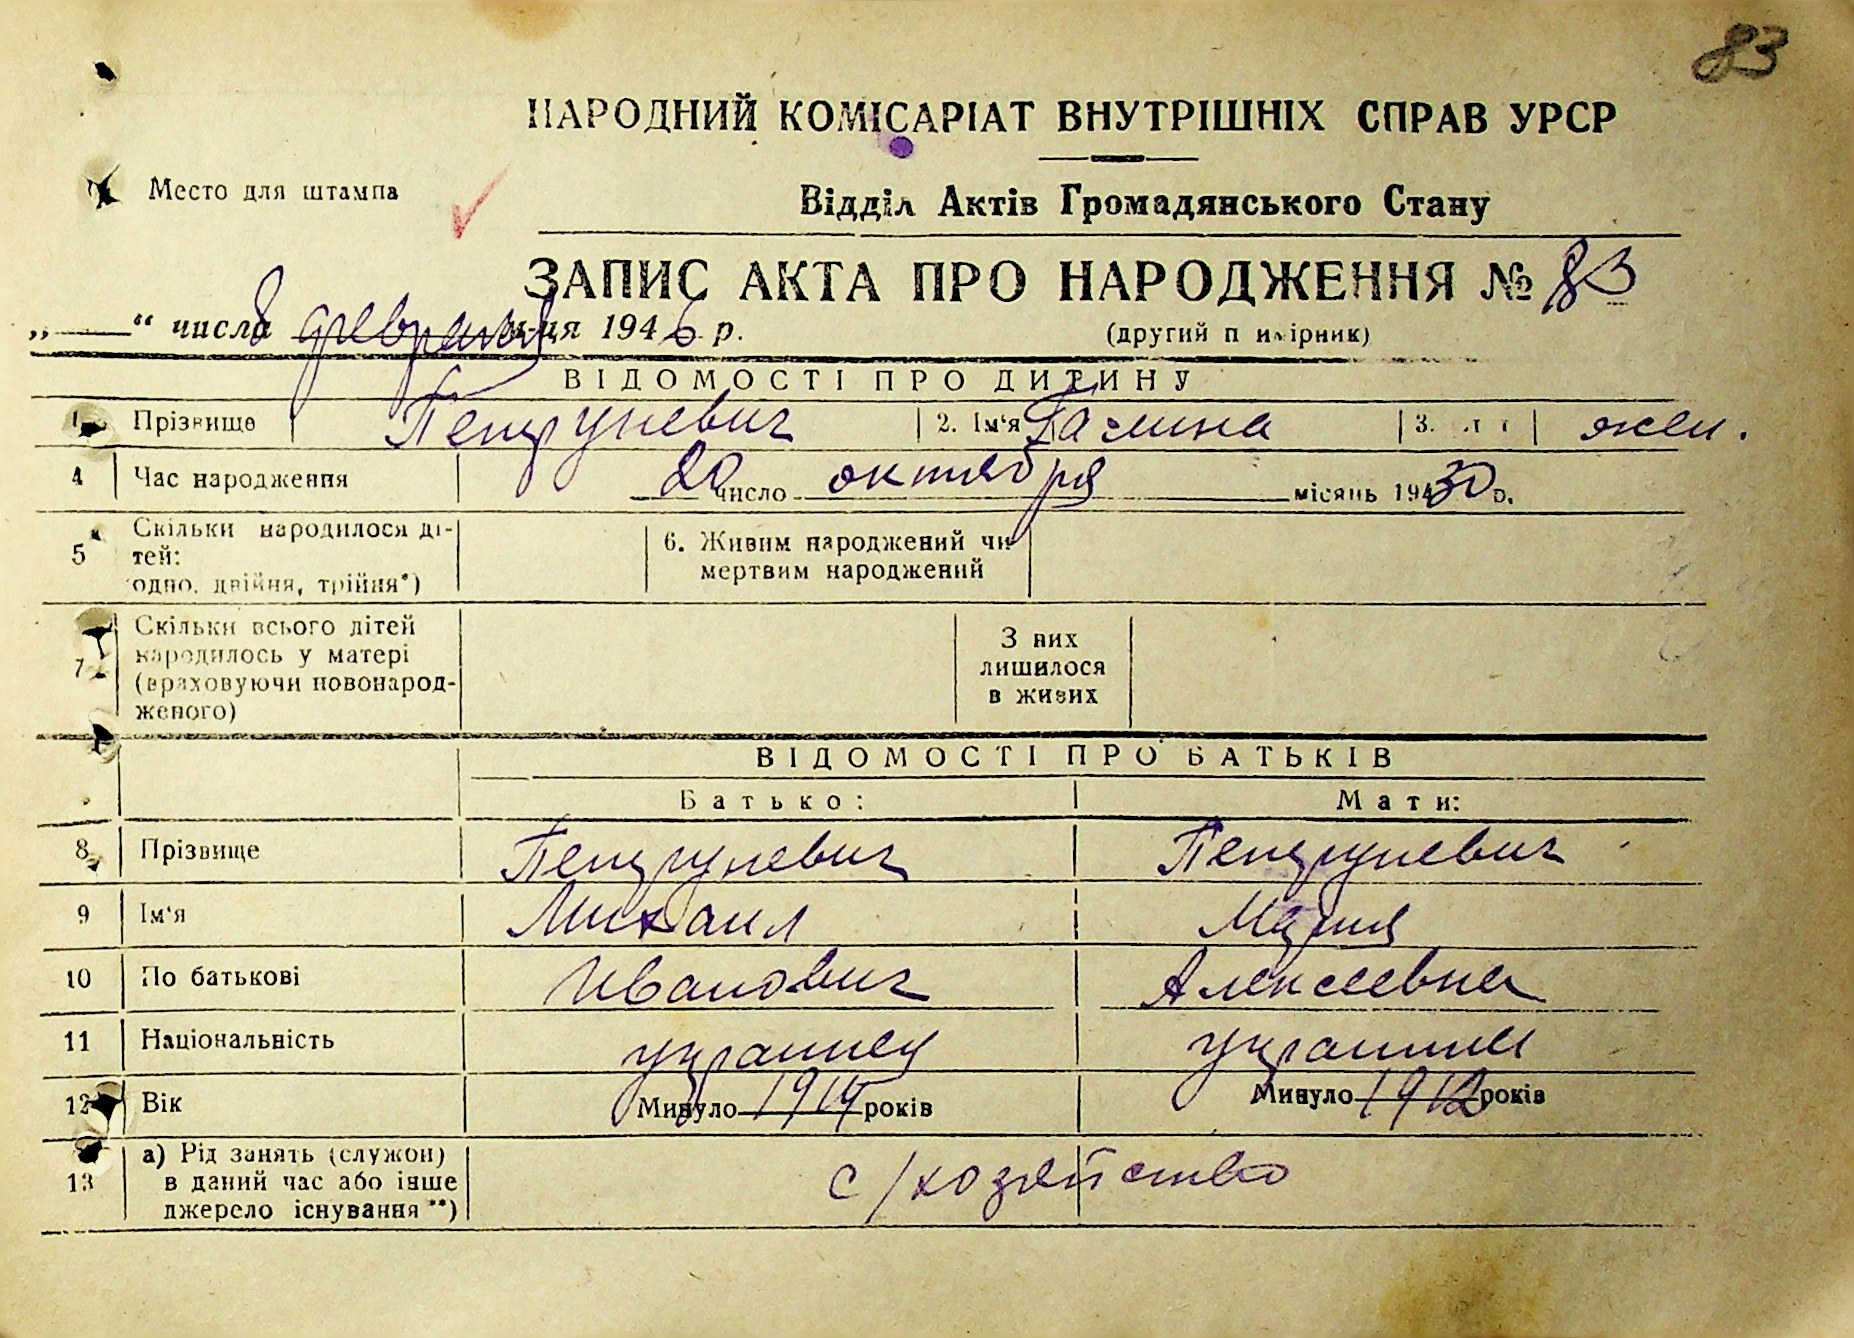 83
НАРОДНИЙ КОМІСАРІАТ ВНУТРІШНІХ СПРАВ УРСР
Место для штампа
Відділ Актів Громадянського Стану
ЗАПИС АКТА ПРО НАРОДЖЕННЯ № 83
„ “ числа 8 февраля м-ця 1946 р. (другий п имірник)
ВІДОМОСТІ ПРО ДИТИНУ
1. Прізвище Петруневич 2. Ім‘я Галина 3. жен.
4 Час народження 20 число октября місяць 1930 р.
5 Скільки народилося ді-
тей:
одно, двійня, трійня*)
6. Живим народжений чи
мертвим народжений
7 Скільки всього дітей
народилось у матері
(враховуючи новонарод-
женого)
З них
лишилося
в живих
ВІДОМОСТІ ПРО БАТЬКІВ
Батько: Мати:
8 Прізвище Петруневич Петруневич
9 Ім‘я Михаил Мария
10 По батькові Иванович Алексеевна
11 Національність украинец украинка
12 Вік Минуло 1914 років Минуло 1912 років
13 а) Рід занять (служби)
в даний час або інше
джерело існування **)
с/хозяйство